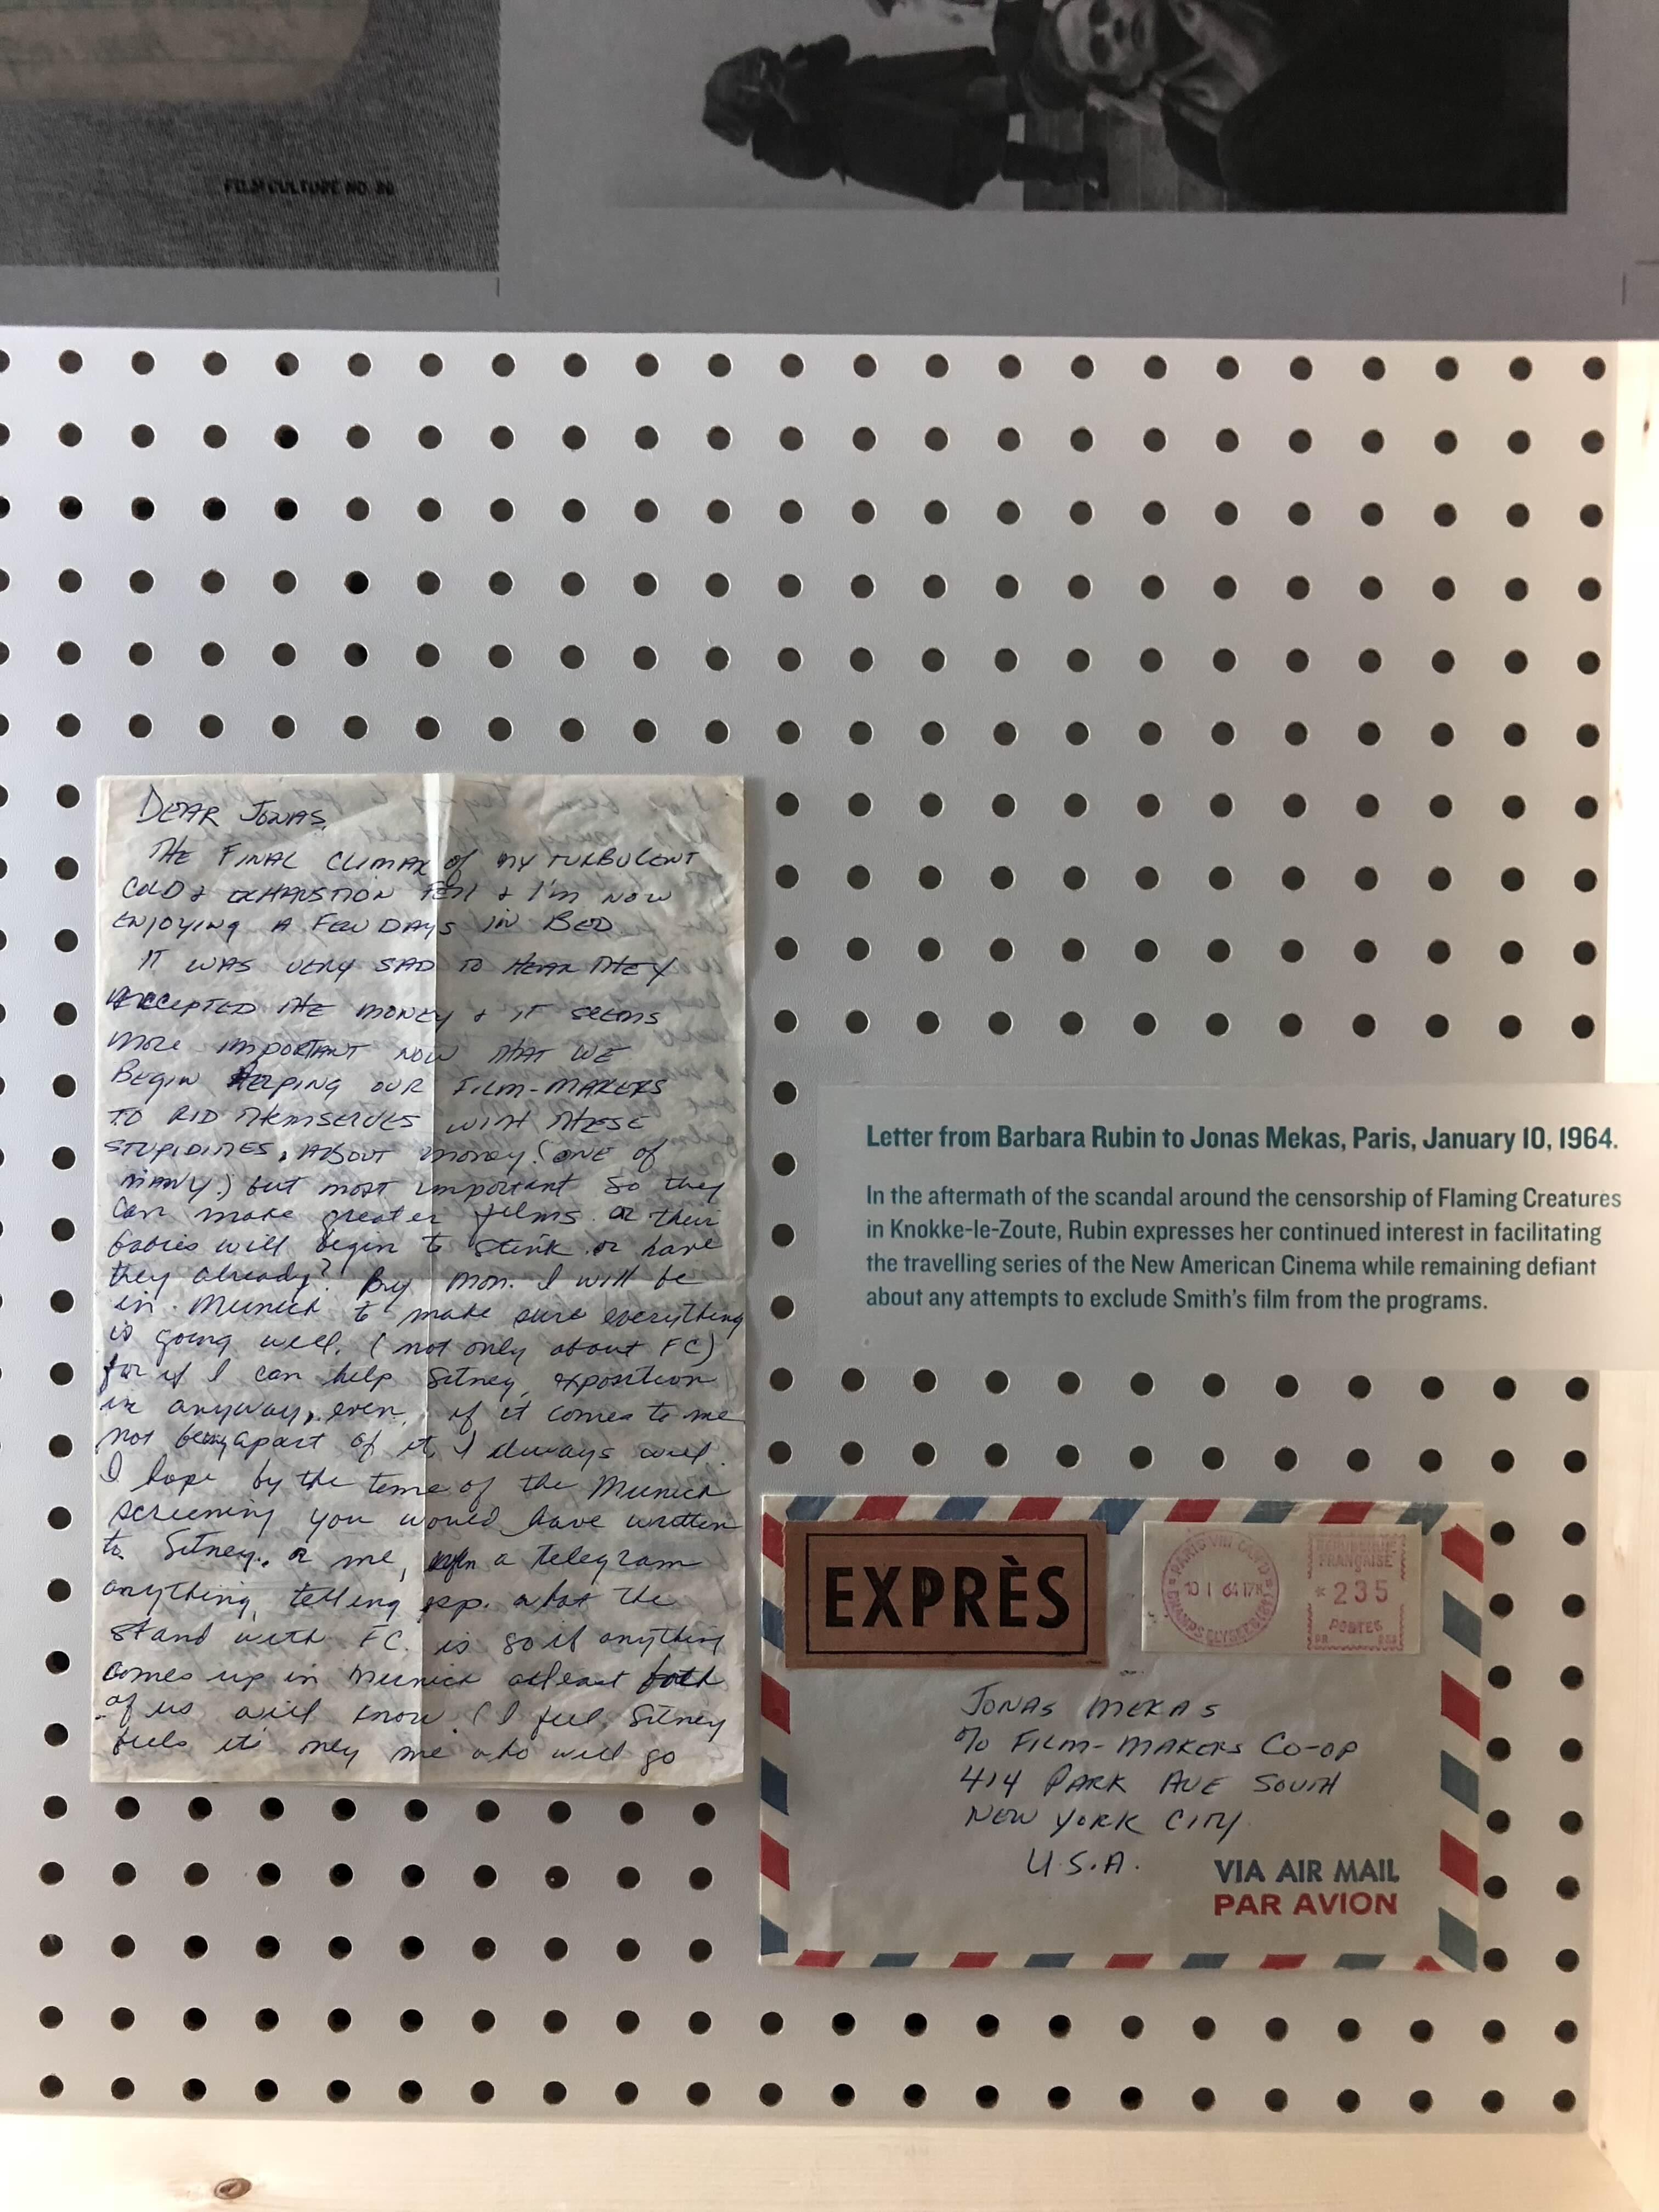 FILM CULTURE NO.
DEAR JONAS,
THE FINAL CLIMAX of MY TURBULENT
COLD & EXHAUSTION FELL & I'm NOW
ENJOYING A FEW DAYS IN BED
IT WAS VERY SAD TO HEAR THEY
ACCEPTED THE MONEY & IT SEEMS
MORE IMPORTANT NOW THAT WE
BEGIN HELPING OUR FILM-MAKERS
TO RID THEMSELVES WITH THESE
STUPIDITIES, ABOUT money! (ONE of
MANY.) but most important so they
can make greater films or their
babies will begin to stink or have
they already? By Mon. I will be
in Munich to make sure everything
is going well. (not only about FC)
for if I can help Sitney, exposition
in anyway, even, if it comes to me
not being apart of it, I always will.
I hope by the time of the Munich
screening you would have written
to Sitney. or me, a telegram
anything, telling what the
stand with FC. is so if anything
comes up in Munich atleast both
of us will know. (I feel, Sitney
feels it's only me who will go
Letter from Barbara Rubin to Jonas Mekas, Paris, January 10, 1964.
In the aftermath of the scandal around the censorship of Flaming Creatures
in Knokke-le-Zoute, Rubin expresses her continued interest in facilitating
the travelling series of the New American Cinema while remaining defiant
about any attempts to exclude Smith's film from the programs.
EXPRÈS
PARIS VIII
10 1 64 17H
CHAMPS ELYSEES
REPUBLIQUE
FRANÇAISE
*235
POSTES
JONAS MEKAS
% FILM-MAKERS CO-OP
414 PARK AVE SOUTH
NEW YORK CITY
U.S.A.
VIA AIR MAIL
PAR AVION